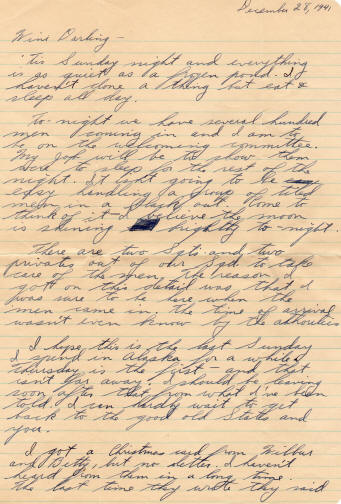 December 28, 1941
Wine Darling –
'Tis Sunday night and everything
is as quiet as a frozen pond. I
haven't done a thing but eat &
sleep all day.
To-night we have several hundred
men coming in and I am to
be on the welcoming committee.
My job will be to show them
where to sleep for the rest of the
night. It isn't going to be
easy handling a group of
men in a black out. Come to
think of it I believe the moon
is shining brightly to-night.
There are two Sgts. and two
privates out of our sqd to take
care of the men. The reason I
got on this detail was that I
was sure to be here when the
men came in. the time of arrival
wasn't even know by the authorities
I hope this is the last Sunday
I spend in Alaska for a while
thursday is the first – and that
isn't far away. I should be leaving
soon after that from what I've been
told. I can hardly wait to get
back to the good old States and
you.
I got a Christmas card from Wilbur
and Betty, but no letter. I haven't
heard from them in a long time.
the last time they wrote they said